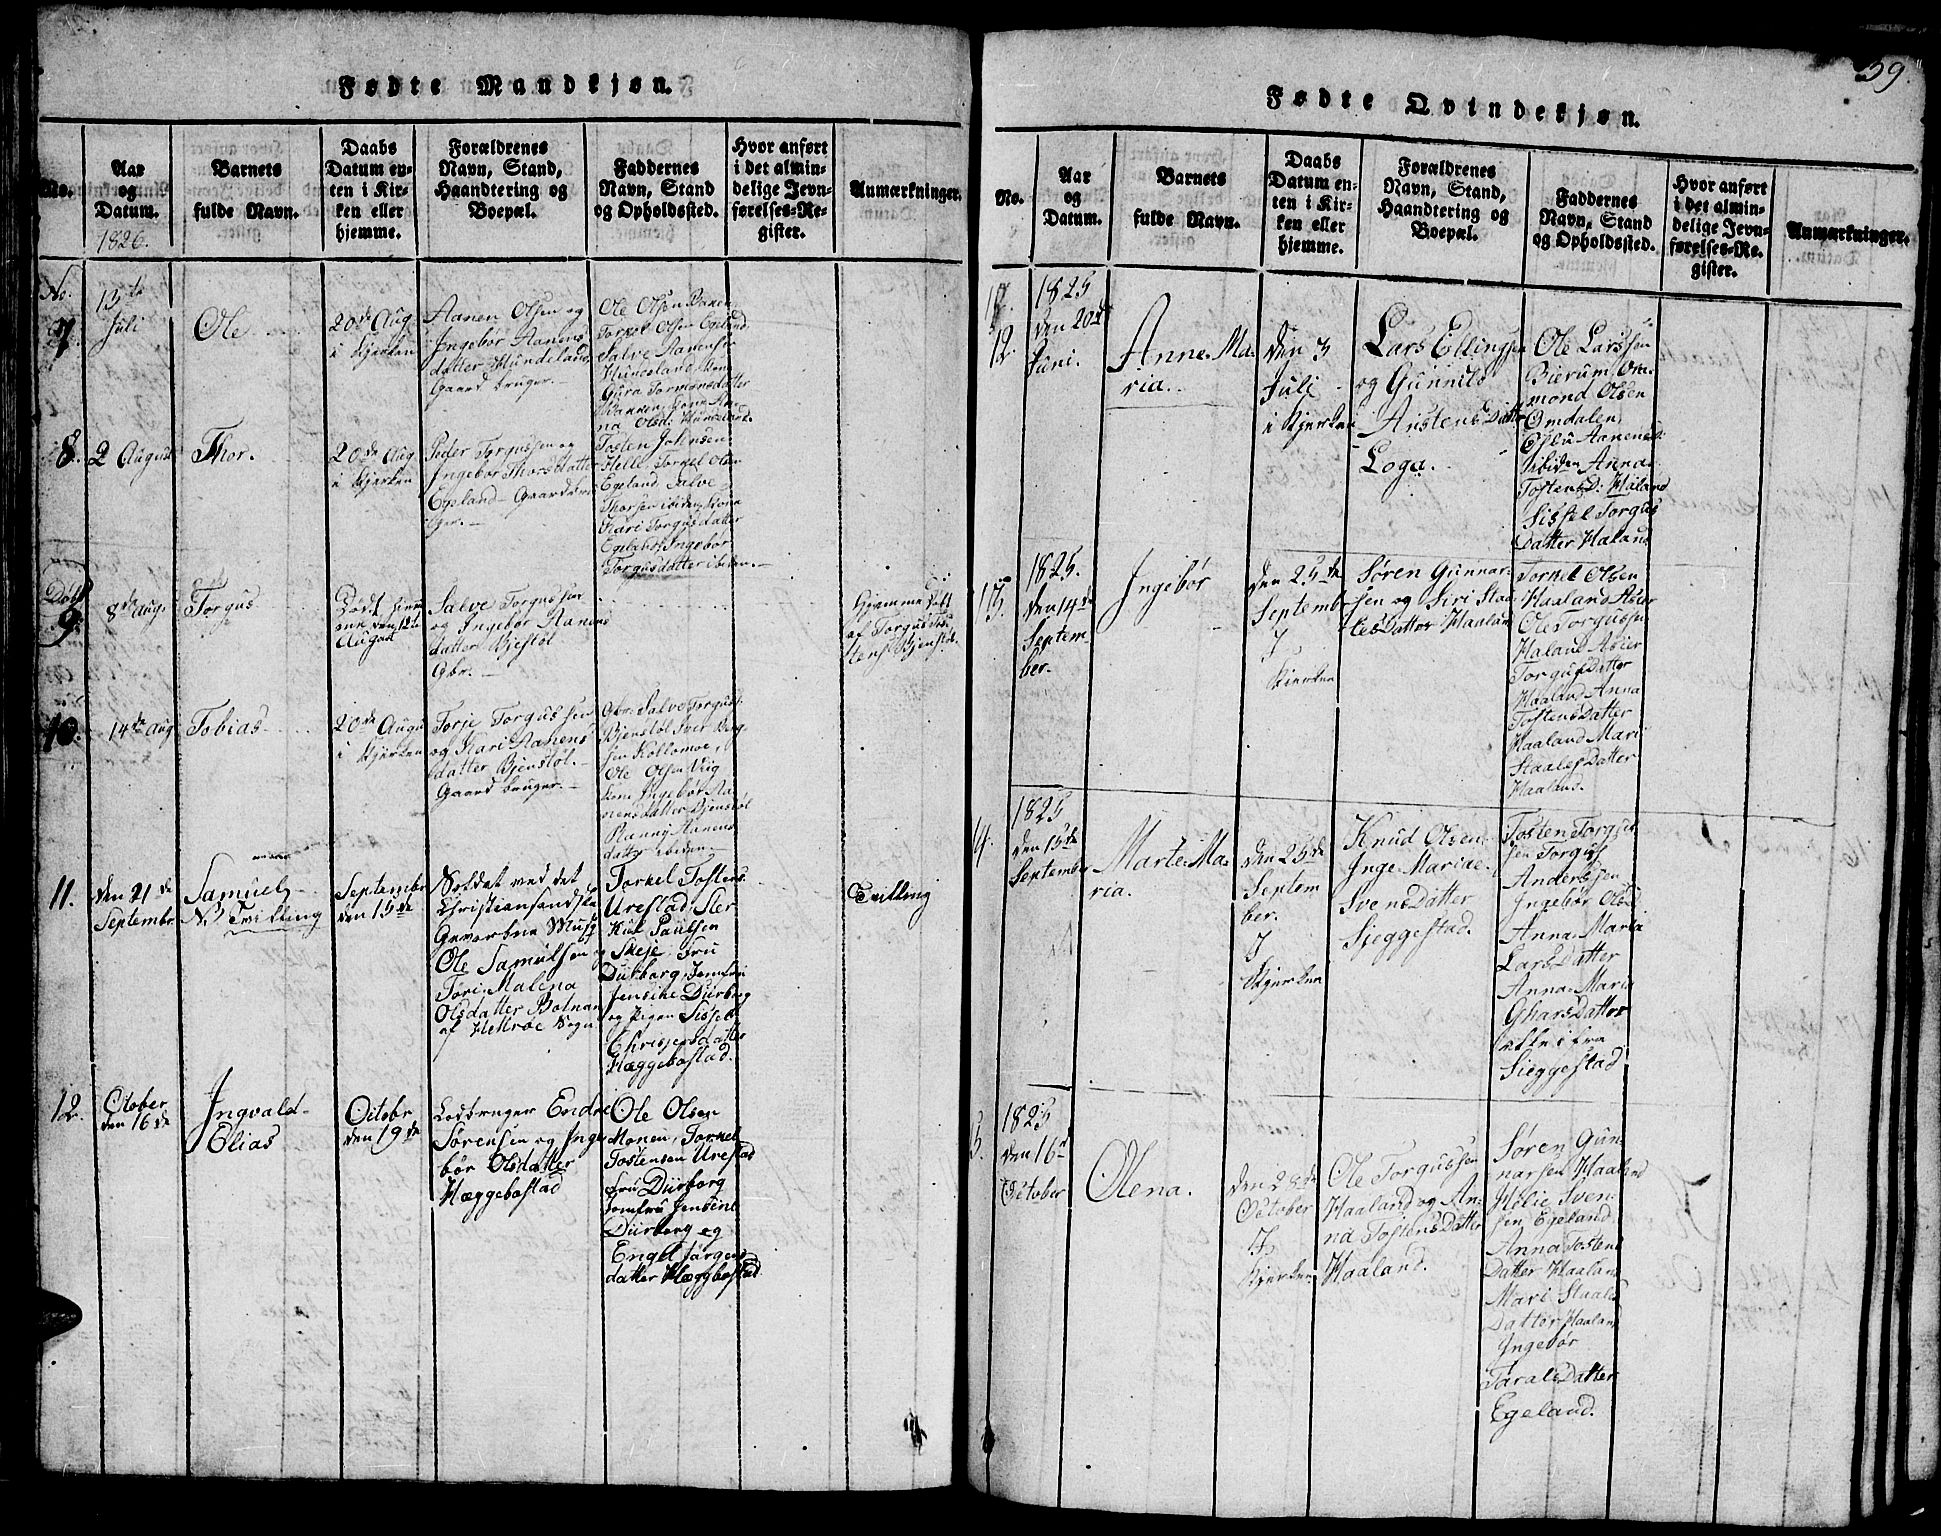 Fødte Mandkjøn.
No.
Aar
og
Datum.
1826.
Barnets
fulde Navn.
Daabs
Datum en-
ten i Kir-
ken eller
hjemme.
Forældrenes
Navn, Stand,
Haandtering og
Boepæl.
Faddernes
Navn, Stand
og Opholdssted.
Hvor anført
i det almin-
delige Jevn-
førelses-Re-
gister.
Anmærkninger.
No.
7
13te
Juli
Ole
20de Aug
i Kjerken
Aanen Olsen og
Ingebør Aanens
datter Hundeland
Gaard bruger.
Ole Olsen
Torkel Olsen Egeland
Salve Aanensen
Hunseland
Gura Tormonsdatter
na Olsd. Hunseland
8.
2 August
Thor.
20de Aug
i Kjerken
Peder Torgussen og
Ingebør Thorsdatter
Egeland Gaardbru
ger.
Tosten Joh
Helle Torkel Olsen
Egeland Salve
Thorsen ibiden, Kone
Kari Torgusdatter
Egeland, Ingebør
Torgusdatter ibiden.
Døbt
9.
8de Aug.
Torgus
Døbt hjem
me den 12te
August
Salve Torgussen
og Ingebør Aanens
datter Bjestøl
Gbr.
Hjemme døbt
af Torgus To
stens Bjenstøl
10.
14de Aug
Tobias
20de Augu
i Kjerken
Torje Torgussen
og Kari Aanens
datter Bjenstøl.
Gaard bruger.
Gbr. Salve Torgus
Bjenstøl Iver Berg
sen Kollomoe,
Ole Olsen Veig
Kone Ingebør Aa
nensdatter Bjenstøl
Ranny Aanens
datter ibiden.
11.
den 21de
Septembr
Samuel
No 1 Tvilling
Septembr
den 15de
Soldat ved det
Christiansandske
Gevorbne Musq
Ole Samulsen og
Tori Malena
Olsdatter Botnan
af Hettrøe Sogn
Torkel Tostens
Urestad
Paulsen
Skeje Fru
Durborg, Jomfru
Jensine Durborg
og Pigen Sissel
Chrisjensdatter
Hæggebostad.
Tvilling
12.
October
den 16de
Ingvald
Elias
Octobr
den 19de
Lodbruger Endre
Sørensen og Inge
bør Olsdatter
Hæggebostad
Ole Olsen
Monen, Torkel
Tostensen Urestad
Fru Durborg
Jomfru Jensine
Durborg og
Engel Jørgens
datter Hæggbostad
39.
Fødte Qvindekjøn.
No.
Aar
og
Datum.
Barnets
fulde Navn.
Daabs
Datum en-
ten i Kir-
ken eller
hjemme.
Forældrenes
Navn, Stand,
Haandtering og
Boepæl.
Faddernes
Navn, Stand
og Opholdssted.
Hvor anført
i det almin-
delige Jevn-
førelses-Re-
gister.
Anmærkninger.
12.
1825
den 20de
Juni.
Anne Ma-
ria.
den 3
Juli
i Kjerken
Lars Ellingsen
og Gunnild
Austens Datter
Loga.
Ole Larssen
Bierum, Om-
mond Olsen
Omdalen,
Aanensd:
ibiden Anna
Tostensd: Haland
Sissel Torgus
Datter Haland
13.
1825.
den 14de
Septem-
ber.
Ingebør
den 25de
Septembr
I
Kierken
Søren Gunnar-
sen og Siri Staa-
les Datter Haalan
Torkel Olsen
Haaland Asier
Ole Torgussen
Haland Asier
Torgus Datter
Haaland Anna
Tostens Datter
Haaland Mari
Staales Datter
Haaland.
4.
1825
den 15de
September
Marte Ma-
ria.
den 25de
Septem
ber.
I
Kjerken
Knud Olsen
Inge Mariae
Svens Datter
Sjeggestad.
Tosten Torgus
sen Torgus
Anderssen
Ingebør Olsd
Anna Maria
Lars Datter
Anna Maria
Ghars Datter
alle i fra
Sieggestad
5.
1825
den 16de
October
Olena.
den 28de
October
I
Kjerken
Ole Torgussen
Haaland og An-
na Tostens Datter
Haaland.
Søren Gun-
narsen Haaland
Helie Sven-
sen Egeland
Anna Tostens
Datter Haaland
Mari Staales
Datter Haaland
Ingebør
Tarals Datter
Egeland.